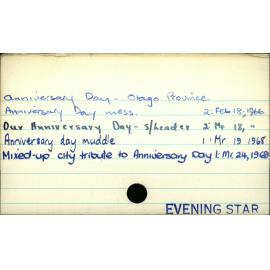 Anniversary Day - Otago Province
Anniversary Day mess. 2: Feb 18, 1966
Our Anniversary Day - s/leader 2: Mr 18, "
Anniversary day muddle 1: Mr 19 1968
Mixed-up city tribute to Anniversary Day 1: Mr 24, 1969
EVENING STAR